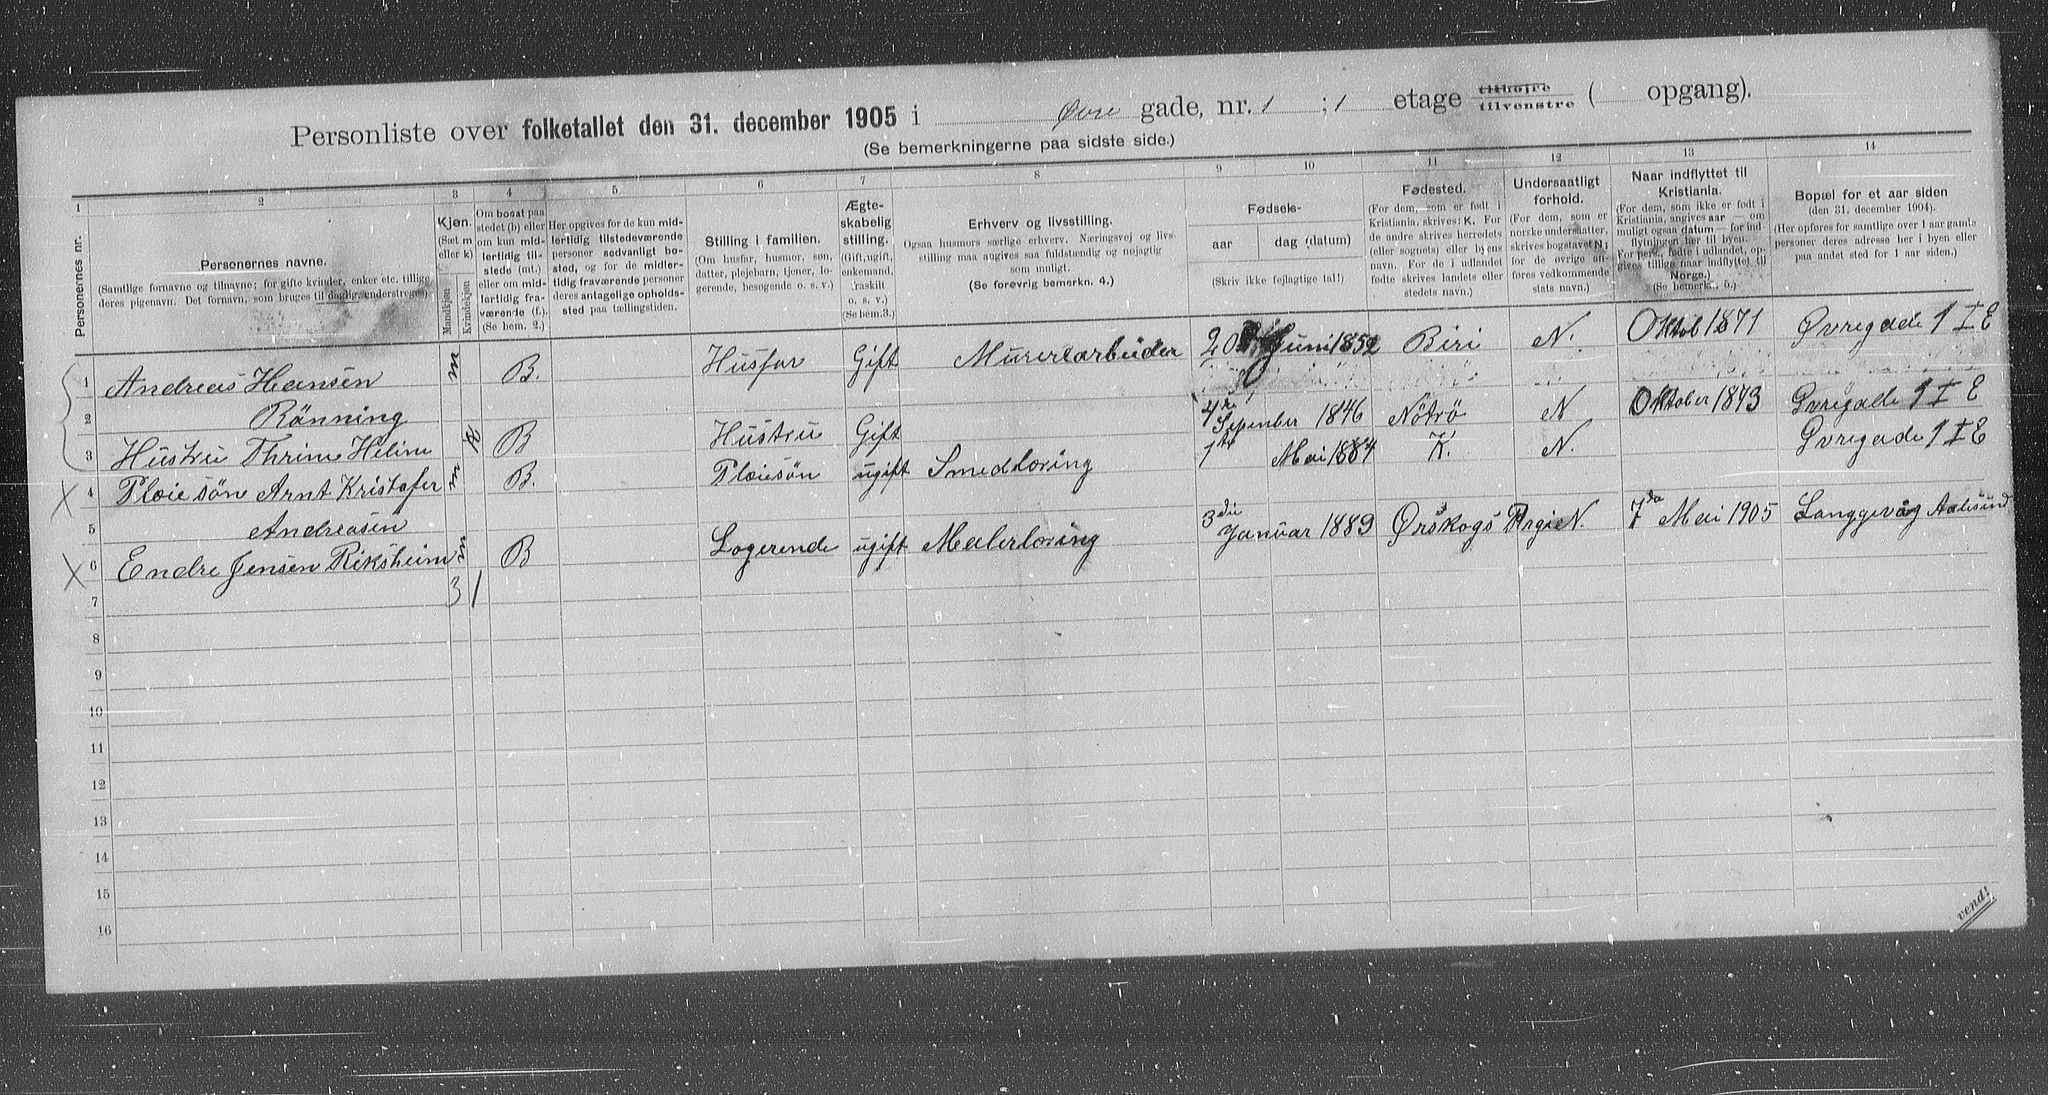 Personliste over folketallet den 31. december 1905 i Øvre gade, nr. 1 ; 1 etage tilhøire tilvenstre ( opgang).
(Se bemerkningerne paa sidste side.)
1 2 3 4 5 6 7 8 9 10 11 12 13 14
Personernes nr.
Personernes navne.
(Samtlige fornavne og tilnavne; for gifte kvinder, enker etc. tillige
deres pigenavn. Det fornavn, som bruges til daglig, understreges)
Kjøn.
(Sæt m
eller k)
Mandkjøn
Kvindekjøn
Om bosat paa
stedet (b) eller
om kun mid-
lertidig til-
stede (mt.)
eller om mid-
lertidig fra-
værende (f.).
(Se bem. 2.)
Her opgives for de kun mid-
lertidig tilstedeværende
personer sedvanligt bo-
sted, og for de midler-
tidig fraværende personer
deres antagelige opholds-
sted paa tællingstiden.
Stilling i familien.
(Om husfar, husmor, søn,
datter, plejebarn, tjener, lo-
gerende, besøgende o. s. v.)
Ægte-
skabelig
stilling.
(Gift, ugift,
enkemand,
fraskilt
o. s. v.)
(Se bem.3.)
Erhverv og livsstilling.
Ogsaa husmors særlige erhverv. Næringsvej og livs-
stilling maa angives saa fuldstændig og nøjagtig
som muligt.
(Se forøvrig bemerkn. 4.)
Fødsels-
aar dag (datum)
(Skriv ikke fejlagtige tal!)
Fødested.
(For dem, som er født i
Kristiania, skrives: K. For
de andre skrives herredets
(eller sognets) eller byens
navn. For de i udlandet
fødte skrives landets eller
stedets navn.)
Undersaatligt
forhold.
(For dem, som er
norske undersaatter,
skrives bogstavet N;
for de øvrige an-
føres vedkommende
stats navn.)
Naar indflyttet til
Kristiania.
(For dem, som ikke er født i
Kristiania, angives aar — om
muligt ogsaa datum — for ind-
flytningen her til byen.
For pers., fødte i udlandet, op-
gives tillige naar indflyttet til
Norge.)
(Se bemerk. 5.)
Bopæl for et aar siden
(den 31. december 1904).
(Her opføres for samtlige over 1 aar gamle
personer deres adresse her i byen eller
paa andet sted for 1 aar siden.)
1 Andreas Hansen m B. Husfar Gift Murerarbeider 20 Juni 1852 Biri N. Oktob 1871 Øvregade 1 I E
2 Rönning
3 Hustru Thrine Heline k B Hustru Gift 4de September 1846 Nötrö N Oktober 1873 Øvregade 1 I E
4 Pleiesön Arnt Kristofer m B. Pleiesön ugift Smedlæring 1ste Mai 1884 K. N. Øvregade 1 I E
5 Andreasen
6 Endre Jensen Riksheim m B Logerende ugift Malerlæring 3die Januar 1889 Ørskogs Prgj N. 7de Mai 1905 Langgevåg Aalesund
3 1
7
8
9
10
11
12
13
14
15
16
vend!